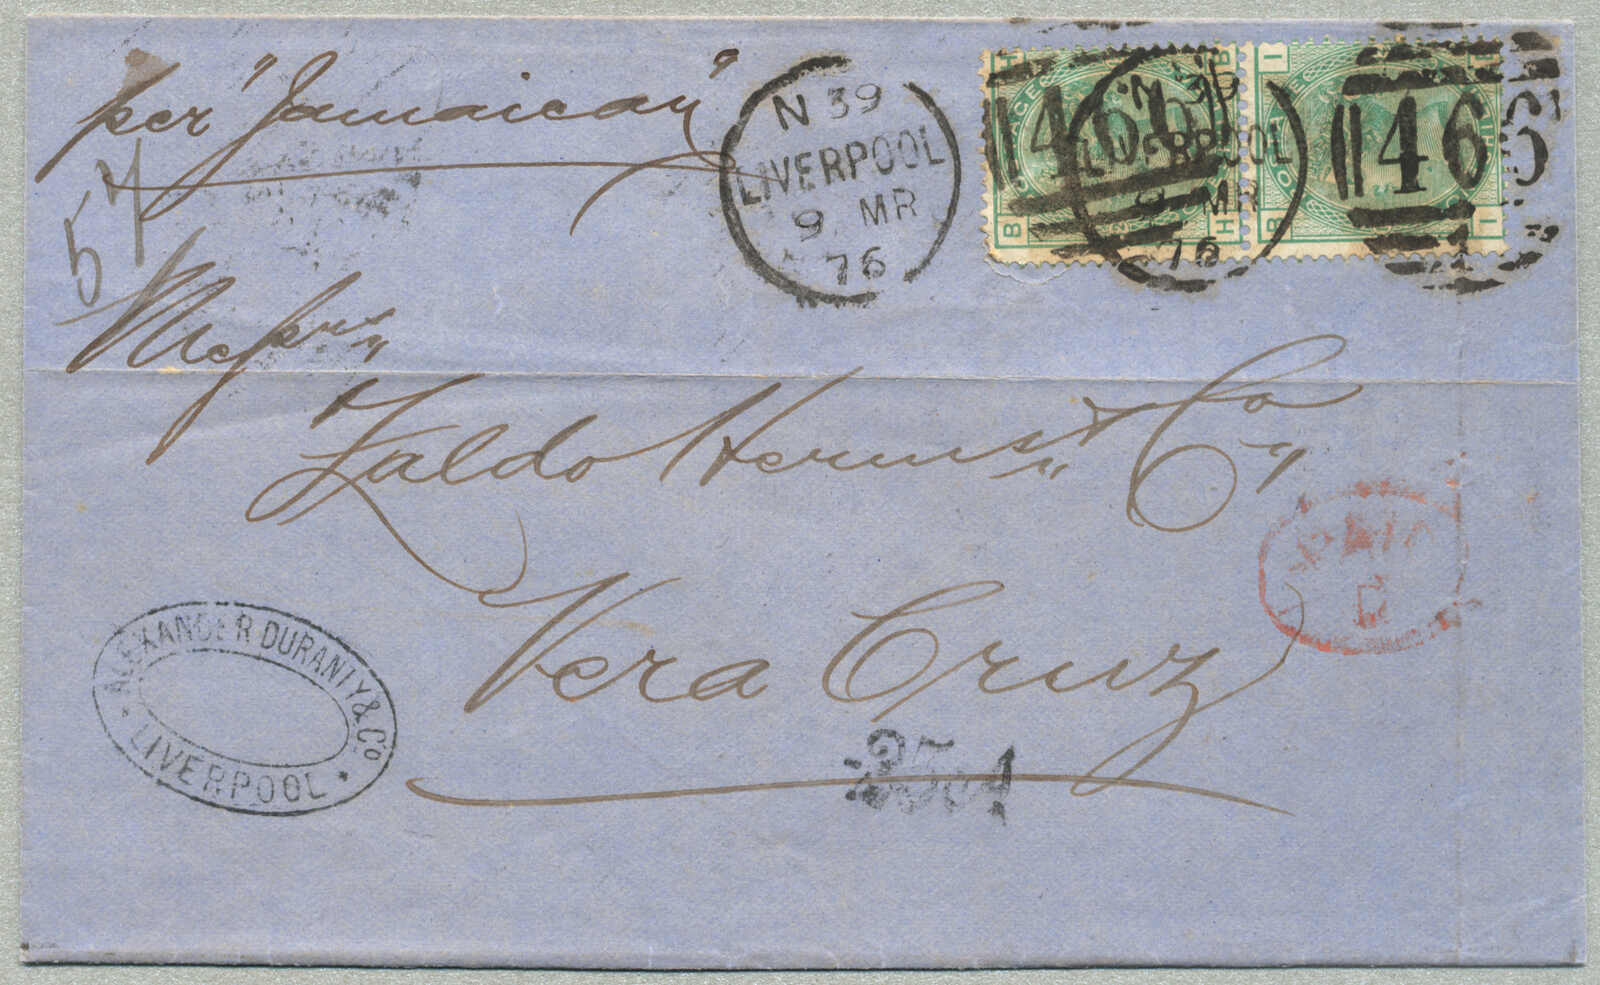 per "Jamaican"
57
N 39
LIVERPOOL
9 MR
76
H B
B H
466
N 39
LIVERPOOL
9 MR
76
I B
B I
466
Messrs
Zaldo Hermns & Co
Vera Cruz
PAID
25
ALEXANDER DURANTY & Co
LIVERPOOL